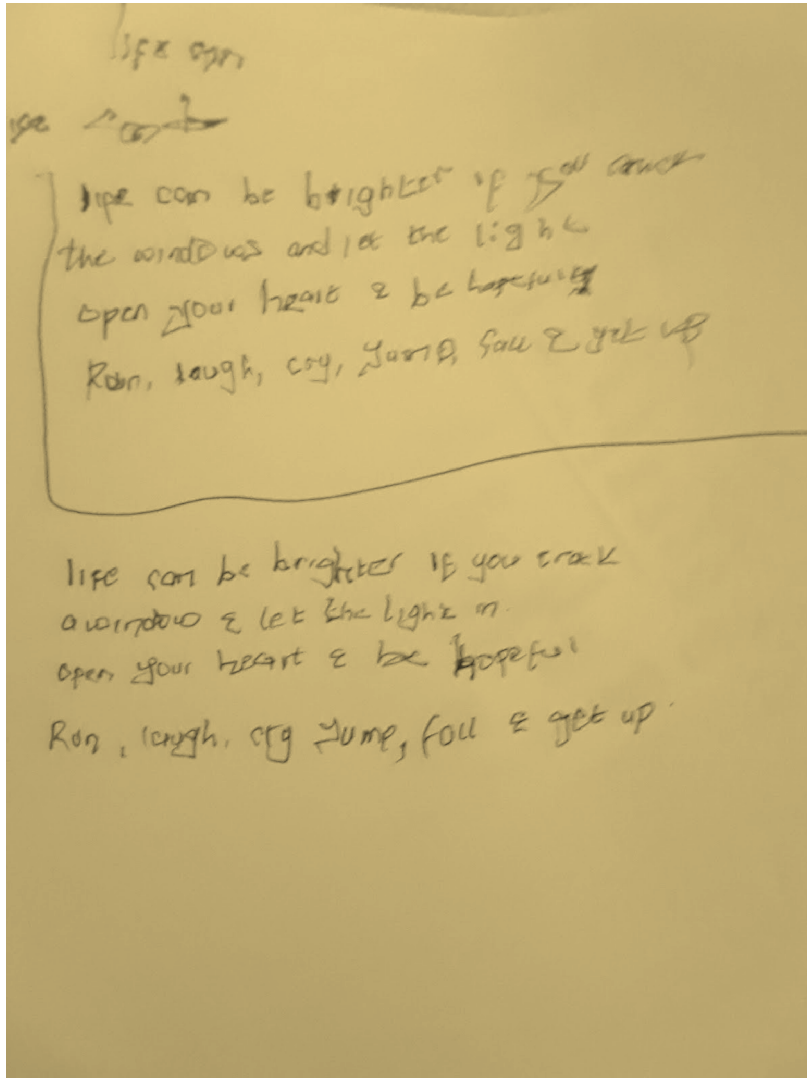 life can
life can be brighter if you crack
the windows and let the light
open your heart & be hopeful
Run, laugh, cry, Jump, fall & get up
life can be brighter if you crack
a window & let the light in.
open your heart & be hopeful
Run, laugh, cry Jump, fall & get up.